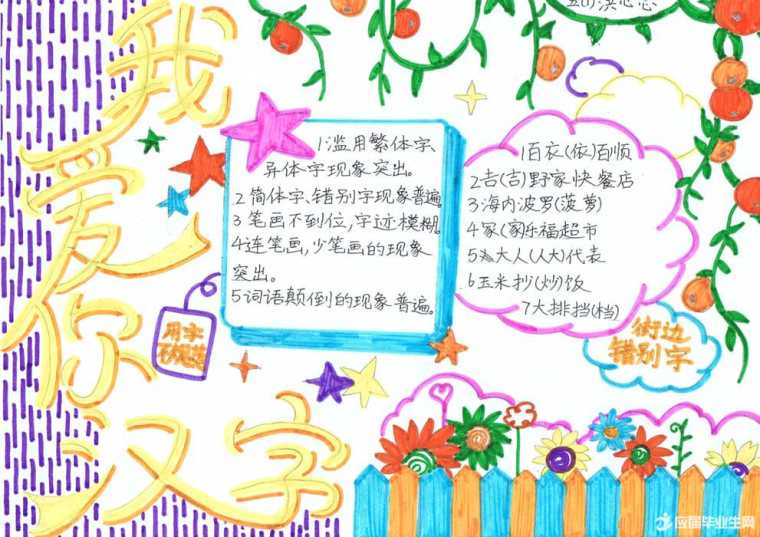 我爱你汉字
1滥用繁体字、
异体字现象突出。
2简体字、错别字现象普遍。
3笔画不到位,字迹模糊。
4连笔画,少笔画的现象
突出。
5词语颠倒的现象普遍。
用字
不规范
1百衣(依)百顺
2吉(吉)野家快餐店
3海内波罗(菠萝)
4家(家)乐福超市
5大人(人大)代表
6玉米抄(炒)饭
7大排挡(档)
街边
错别字
应届毕业生网